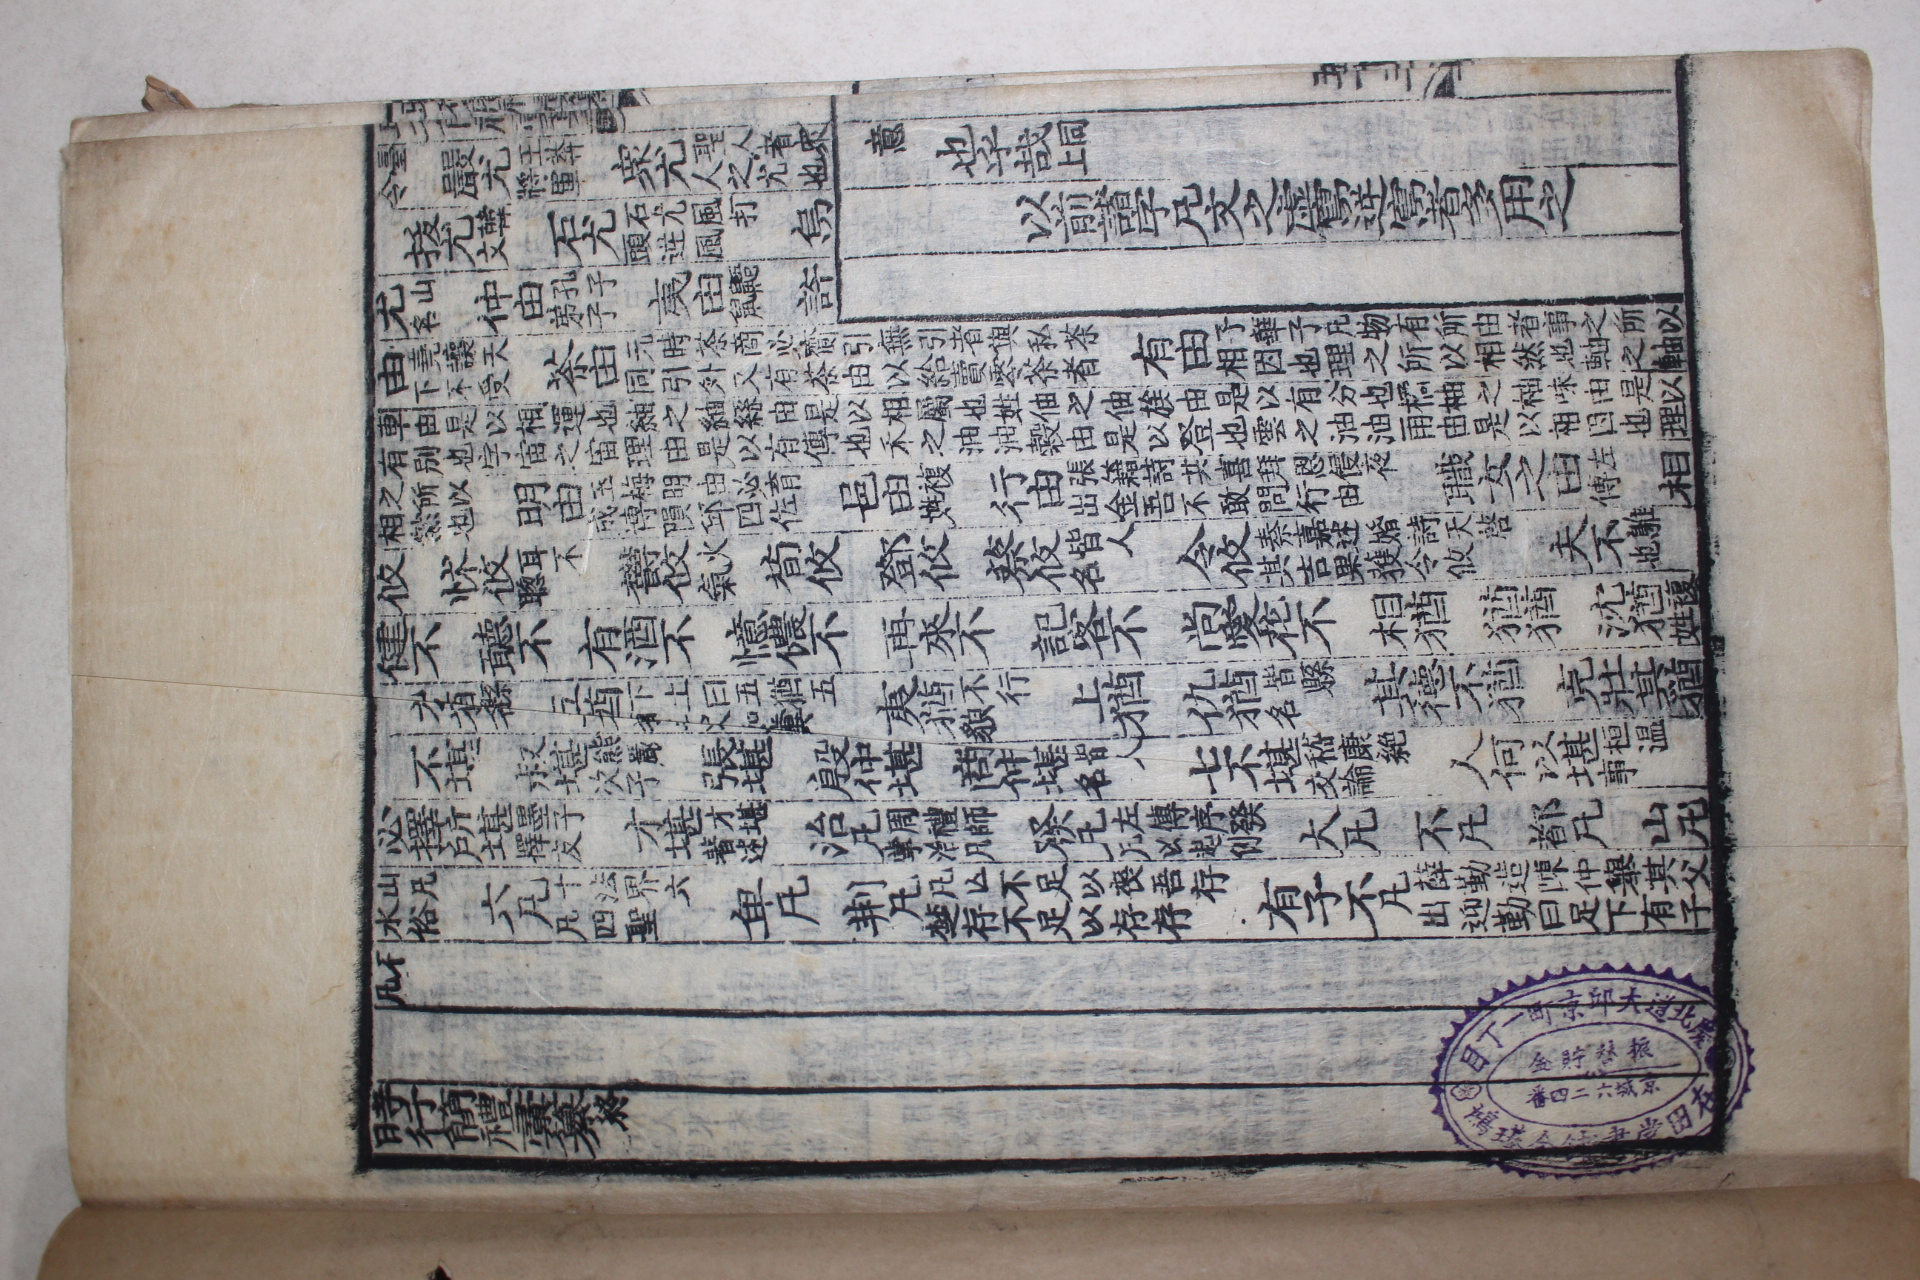 臺令 嚴尤王莽將軍 衆尤聖人者衆人之尤也
拔尤韓文 石尤石尤風打頭逆風 烏
尤山名 仲由孔子弟子 夷由鼯鼠 許
意 也乎哉同上
以前諸字凡文之虛寫逆寫者多用之
由堯讓天下不受 茶由元時茶商必賫引無引者與私茶同引外又有茶由以給賣零茶者 有由子華子凡物有所由者事之所以相因也理之所以相然也軸之軸
車由是以相運也紬之紬絲由是以相屬也姓伷之伷族由是以有分也橘柚之柚味由是以有別也宇宙之宙理由是以有傳也禾之油油穀由是以登也雲之油油雨由是以相因也理
之所以相然也 明由王梅明由必育成傅隕邱四佐 邑由複姓 行由張籍詩共喜拜恩侵夜出金吾不敢問行由 職女之由左傳 相
攸 怵攸耳不聰 鬱攸火氣 荀攸 鄧攸 蔡攸皆人名 令攸秦嘉述婚詩天啓其吉果獲令攸 夫不鵻也
健不 聽不 有酒不 憶儂不 再來不 記客不 尚愛花不 相猶 猶猶 沈猶複姓
猶縣 五酋下上曰五猶五 夷猶不行貌 上猶 仇猶皆縣名 其德不猶 克壯其猶
不堪 叔堪熊嚴次子 張堪 殷仲堪 商仲堪皆人名 七不堪嵇康絶交論 人何以堪桓温事
必擇所堪墨子擇友 才堪才堪著述 治凡周禮師掌治凡 發凡左傳序發凡以起例 大凡 不凡 都凡 山凡
山凡水俗 六凡十法界六凡四聖 卑凡 荆凡凡亡不足以喪吾存楚存不足以存存 有子不凡薛勤造陳仲擧其父出迎勤曰足下有子
不凡
時行簡禮彙纂終